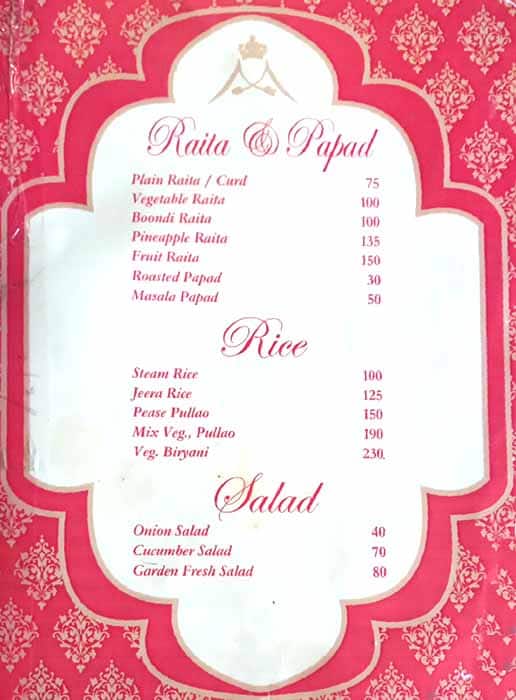 Raita & Papad
Plain Raita / Curd 75
Vegetable Raita 100
Boondi Raita 100
Pineapple Raita 135
Fruit Raita 150
Roasted Papad 30
Masala Papad 50
Rice
Steam Rice 100
Jeera Rice 125
Pease Pullao 150
Mix Veg., Pullao 190
Veg. Biryani 230.
Salad
Onion Salad 40
Cucumber Salad 70
Garden Fresh Salad 80